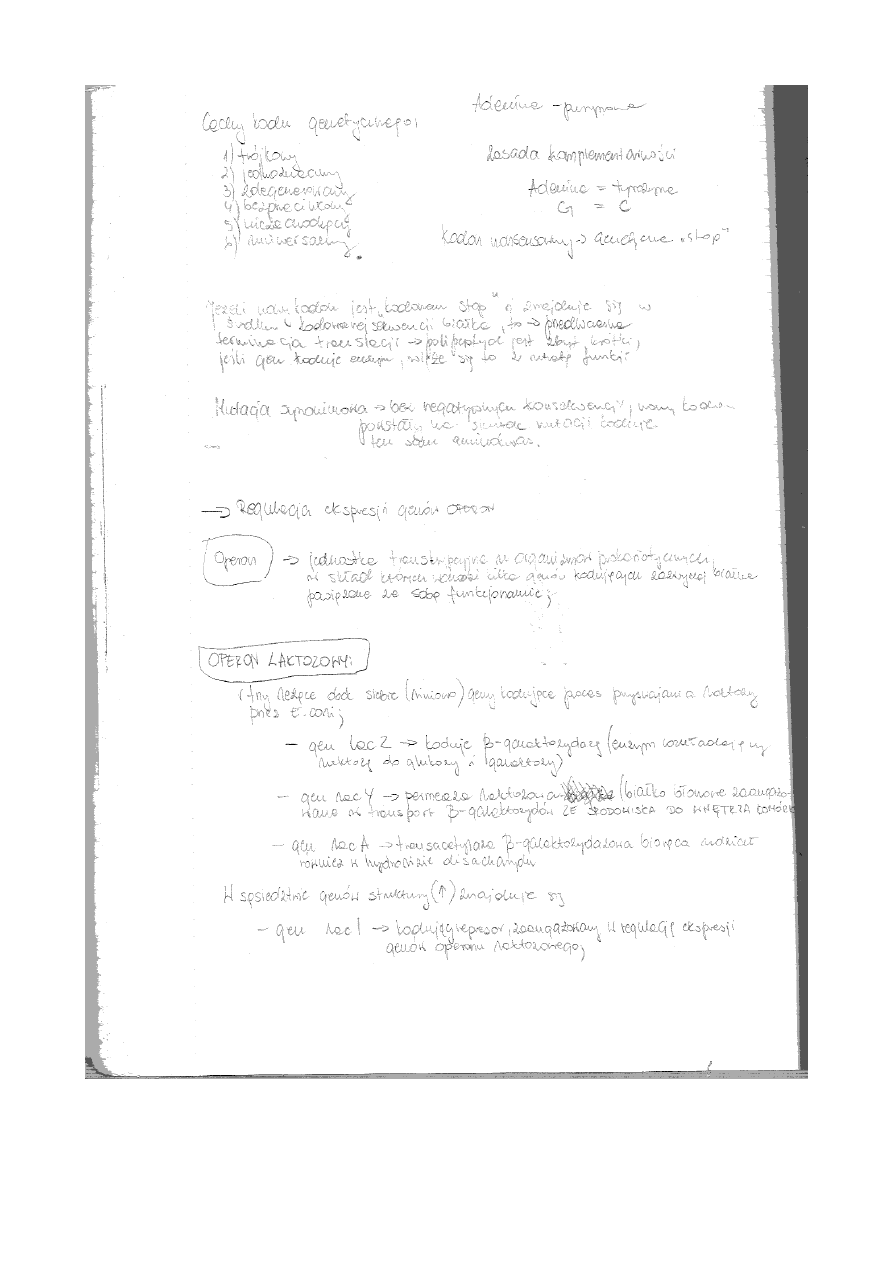 Adenina - purynowa
Cechy kodu genetycznego:
1) trójkowy
2) jednoznaczny
3) zdegenerowany
4) bezprzecinkowy
5) niezachodzący
6) uniwersalny.
Zasada komplementarności
Adenina = tyrozyna
G = C
Kodon nonsensowny → "stop"
Jeżeli nowy kodon jest "kodonem stop" i znajduje się w
środku kodowanej sekwencji białka, to → przedwczesna
terminacja translacji → polipeptyd jest zbyt krótki,
jeśli gen koduje enzym, wiąże się to z utratą funkcji
Mutacja synonimowa → bez negatywnych konsekwencji, nowy kodon
powstały na skutek mutacji koduje
ten sam aminokwas.
→ Regulacja ekspresji genów OPERON
Operon → jednostka transkrypcyjna w organizmach prokariotycznych,
w skład których wchodzi kilka genów kodujących białka
powiązane ze sobą funkcjonalnie;
OPERON LAKTOZOWY:
trzy leżące obok siebie (liniowo) geny kodujące proces przyswajania laktozy
przez E. coli;
- gen lac Z → koduje β-galaktozydazę (enzym rozkładający
laktozę do glukozy i galaktozy)
- gen lac Y → permeaza laktozowa (białko błonowe zaangażo-
wane w transport β-galaktozydów ZE ŚRODOWISKA DO WNĘTRZA KOMÓRKI
- gen lac A → transacetylaza β-galaktozydazowa biorąca udział
również w hydrolizie disacharydu
W sąsiedztwie genów struktury (↑) znajduje się
- gen lac I → kodujący represor, zaangażowany w regulację ekspresji
genów operonu laktozowego;